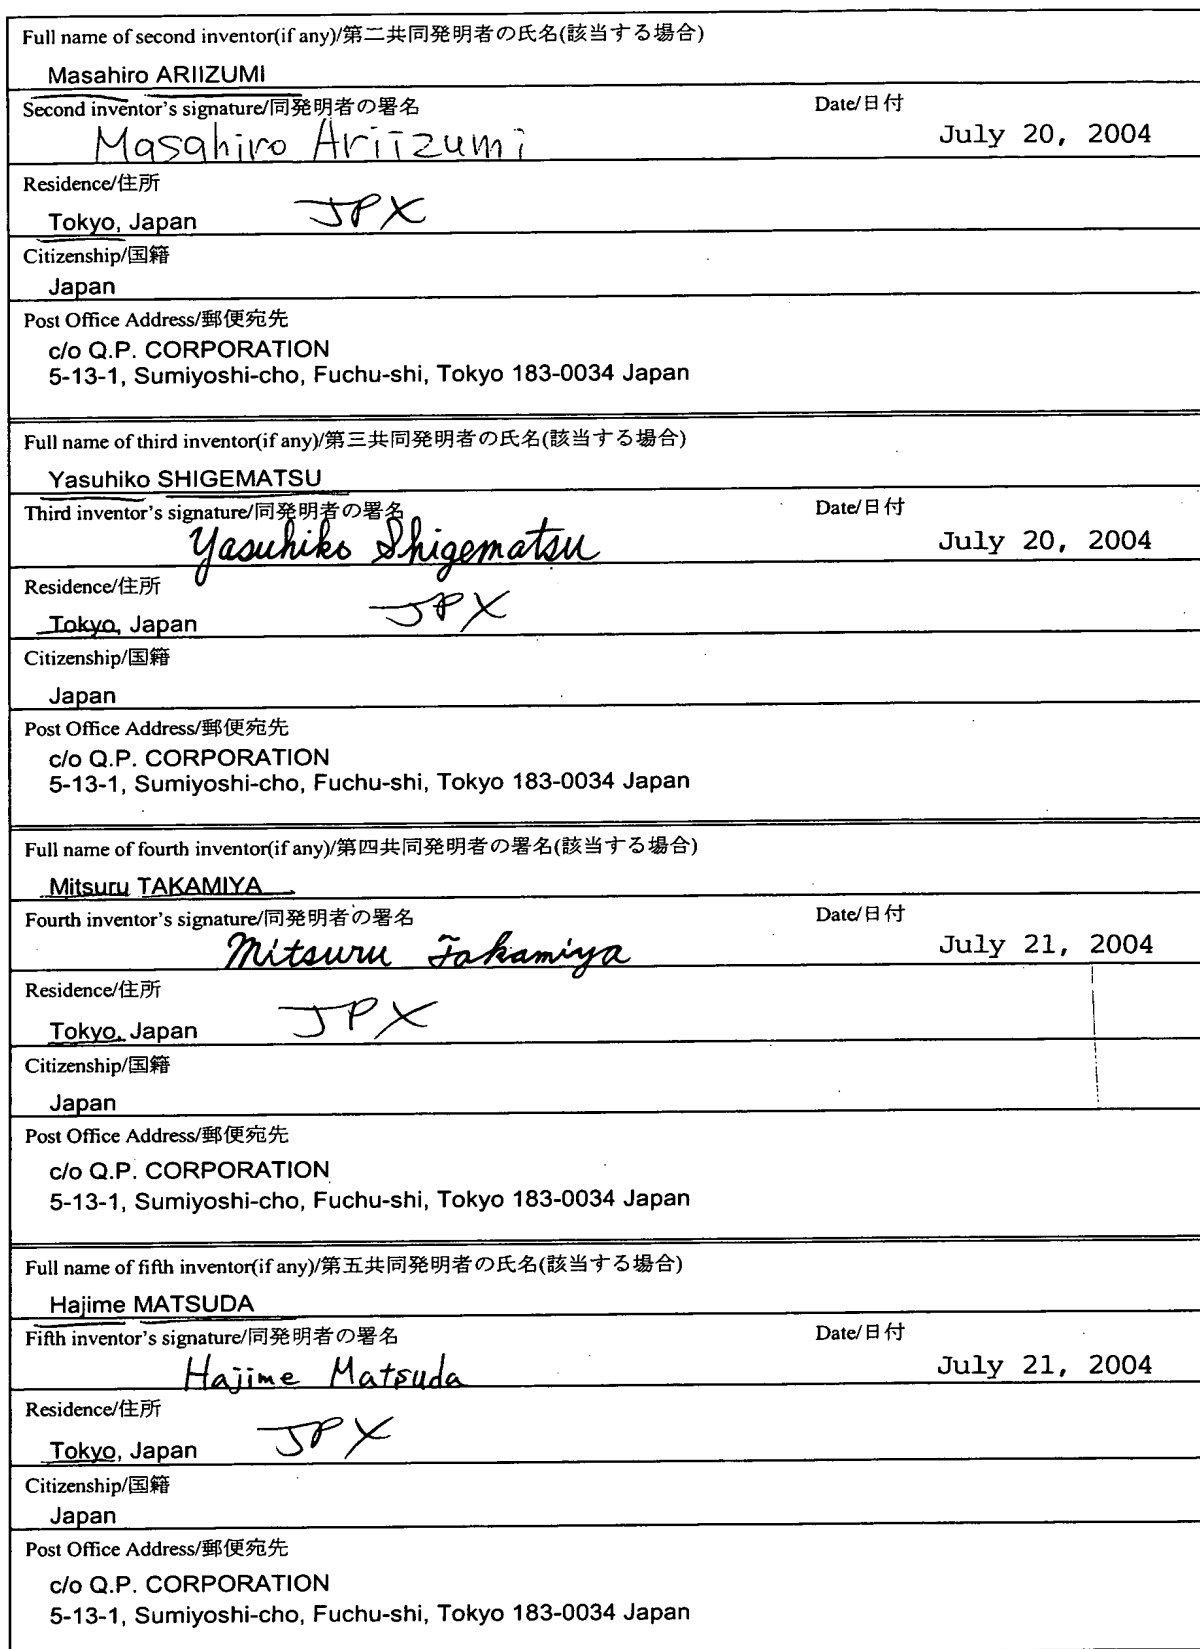 Full name of second inventor(if any)/第二共同発明者の氏名(該当する場合)
Masahiro ARIIZUMI
Second inventor's signature/同発明者の署名 Date/日付
Masahiro Ariizumi July 20, 2004
Residence/住所
Tokyo, Japan JPX
Citizenship/国籍
Japan
Post Office Address/郵便宛先
c/o Q.P. CORPORATION
5-13-1, Sumiyoshi-cho, Fuchu-shi, Tokyo 183-0034 Japan
Full name of third inventor(if any)/第三共同発明者の氏名(該当する場合)
Yasuhiko SHIGEMATSU
Third inventor's signature/同発明者の署名 Date/日付
Yasuhiko Shigematsu July 20, 2004
Residence/住所
Tokyo, Japan JPX
Citizenship/国籍
Japan
Post Office Address/郵便宛先
c/o Q.P. CORPORATION
5-13-1, Sumiyoshi-cho, Fuchu-shi, Tokyo 183-0034 Japan
Full name of fourth inventor(if any)/第四共同発明者の署名(該当する場合)
Mitsuru TAKAMIYA
Fourth inventor's signature/同発明者の署名 Date/日付
Mitsuru Takamiya July 21, 2004
Residence/住所
Tokyo, Japan JPX
Citizenship/国籍
Japan
Post Office Address/郵便宛先
c/o Q.P. CORPORATION
5-13-1, Sumiyoshi-cho, Fuchu-shi, Tokyo 183-0034 Japan
Full name of fifth inventor(if any)/第五共同発明者の氏名(該当する場合)
Hajime MATSUDA
Fifth inventor's signature/同発明者の署名 Date/日付
Hajime Matsuda July 21, 2004
Residence/住所
Tokyo, Japan JPX
Citizenship/国籍
Japan
Post Office Address/郵便宛先
c/o Q.P. CORPORATION
5-13-1, Sumiyoshi-cho, Fuchu-shi, Tokyo 183-0034 Japan